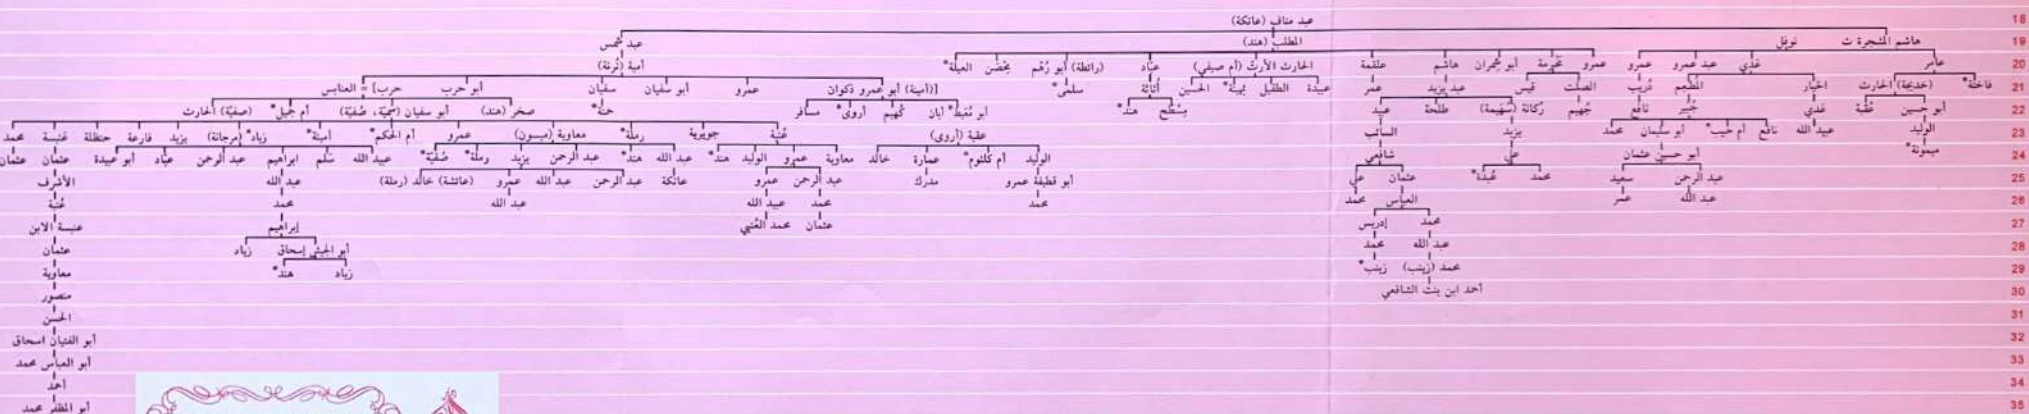 عبد مناف (عاتكة) 18
هاشم المنجرة ت نوفل المطلب (هند) عبد شمس 19
عامر عدي عبد عمرو عمرو عمرو مخرمة أبو شمران هاشم علقمة الحارث الأرث (أم صيفي) عباد (رائطة) أبو رُهْم محصن العيلة* أمية (تُرعة) 20
فاختة* (خديجة) الحارث الخيار المُطعم ضُريب الصلت قيس عبد يزيد عمر عبيدة الطفيل الحسين أُثاثة سلمى* [(آمنة) أبو عمرو ذكوان عمرو أبو سفيان سفيان أبو حرب حرب] = العنابس 21
أبو حسين عُقبة عدي جُبير نافع جُهيم رُكانة (سُهيمة) طلحة عبيد مِسْطَح هند* أبو مُعَيط* أبان كُهيم أروى* مسافر صخر (هند) أبو سفيان أم جميل* (صفيّة) الحارث 22
الوليد عبيد الله نافع أم حبيب* أبو سليمان محمد يزيد السائب عقبة (أروى) عُتْبة جويرية رملة* معاوية (ميسون) عمرو أم الحكم* أمينة* زياد* (مرجانة) يزيد فارعة حنظلة عنبسة محمد 23
ميمونة* أبو حسين عثمان علي شافعي الوليد أم كلثوم* عمارة خالد معاوية عمرو الوليد هند* عبد الله هند* عبد الرحمن يزيد رملة* صفيّة* عبيد الله سلم ابراهيم عبد الرحمن عباد أبو عبيدة عثمان عثمان 24
عبد الرحمن سعيد محمد عَبدة* عثمان علي أبو قطيفة عمرو مدرك عبد الرحمن عمرو عاتكة عبد الرحمن عبد الله عمرو (عائشة) خالد (رملة) عبد الله الأشرف 25
عبد الله عمر العباس محمد محمد محمد عبيد الله عبد الله محمد عُتْبة 26
محمد إدريس عثمان محمد العُتبي إبراهيم عنبسة الابن 27
عبد الله محمد إسحاق زياد عثمان 28
محمد (زينب) زينب* زياد هند* معاوية 29
أحمد ابن بنت الشافعي منصور 30
الحسن 31
أبو الفتيان اسحاق 32
أبو العباس محمد 33
أحمد 34
أبو المظفر محمد 35